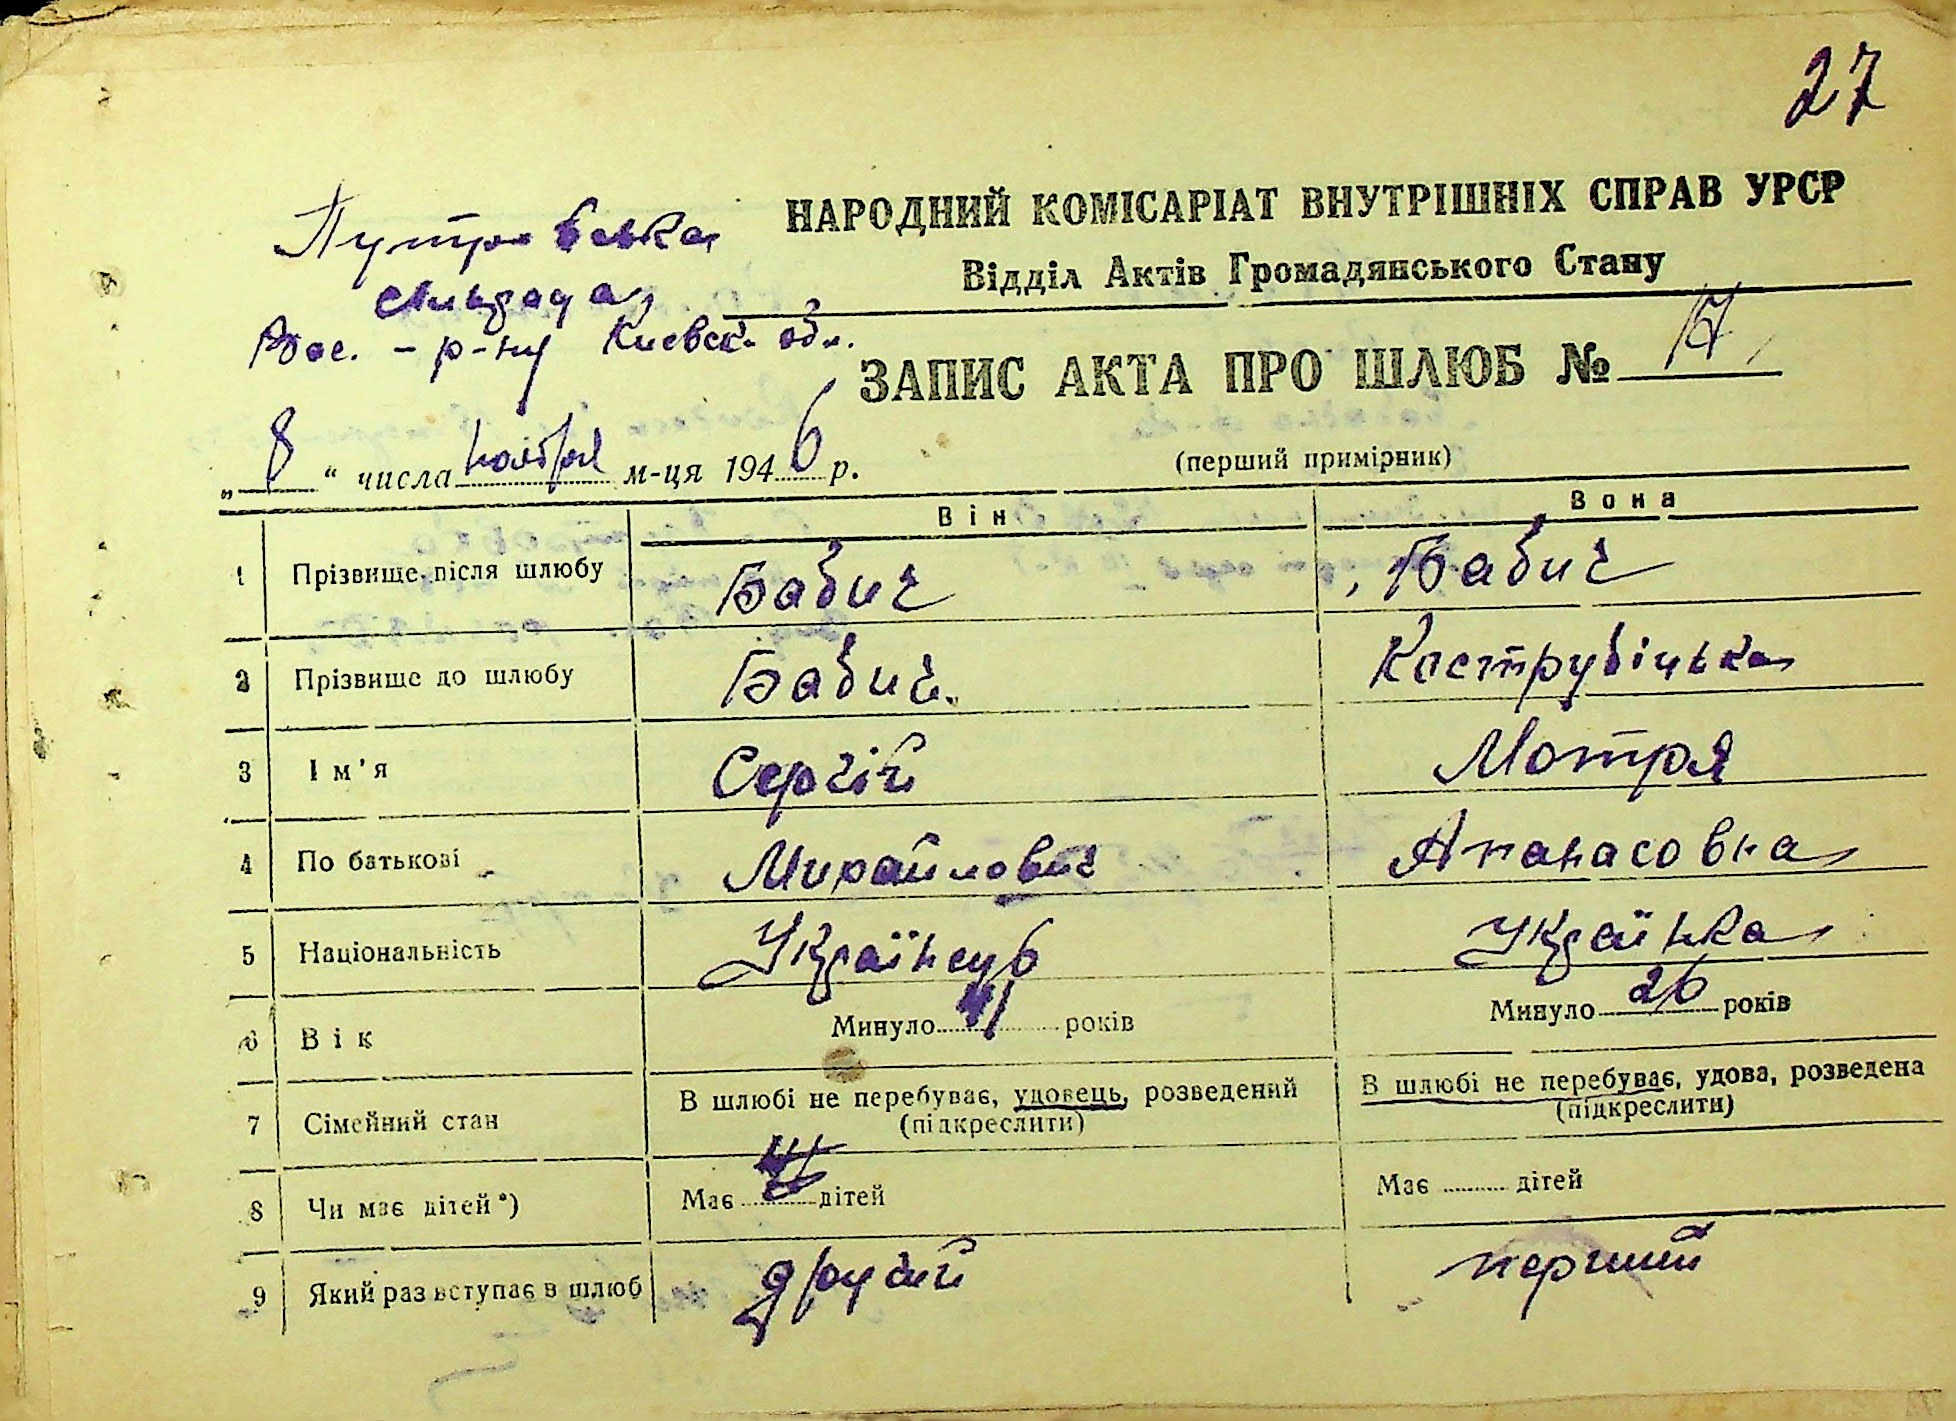 27
Путровська
сільрада
Вас. - р-ну Киевск. обл.
НАРОДНИЙ КОМІСАРІАТ ВНУТРІШНІХ СПРАВ УРСР
Відділ Актів Громадянського Стану
ЗАПИС АКТА ПРО ШЛЮБ № 17
„ 8 “ числа ноября м-ця 1946 р.
(перший примірник)
Він Вона
1 Прізвище після шлюбу Бабич Бабич
2 Прізвище до шлюбу Бабич. Кострубіцька
3 Ім'я Сергій Мотря
4 По батькові Михайлович Апанасовна
5 Національність Українець Українка
6 Вік Минуло 41 років Минуло 26 років
7 Сімейний стан В шлюбі не перебуває, удовець, розведений В шлюбі не перебуває, удова, розведена
(підкреслити) (підкреслити)
8 Чи має дітей*) Має дітей Має дітей
9 Який раз вступає в шлюб другий перший